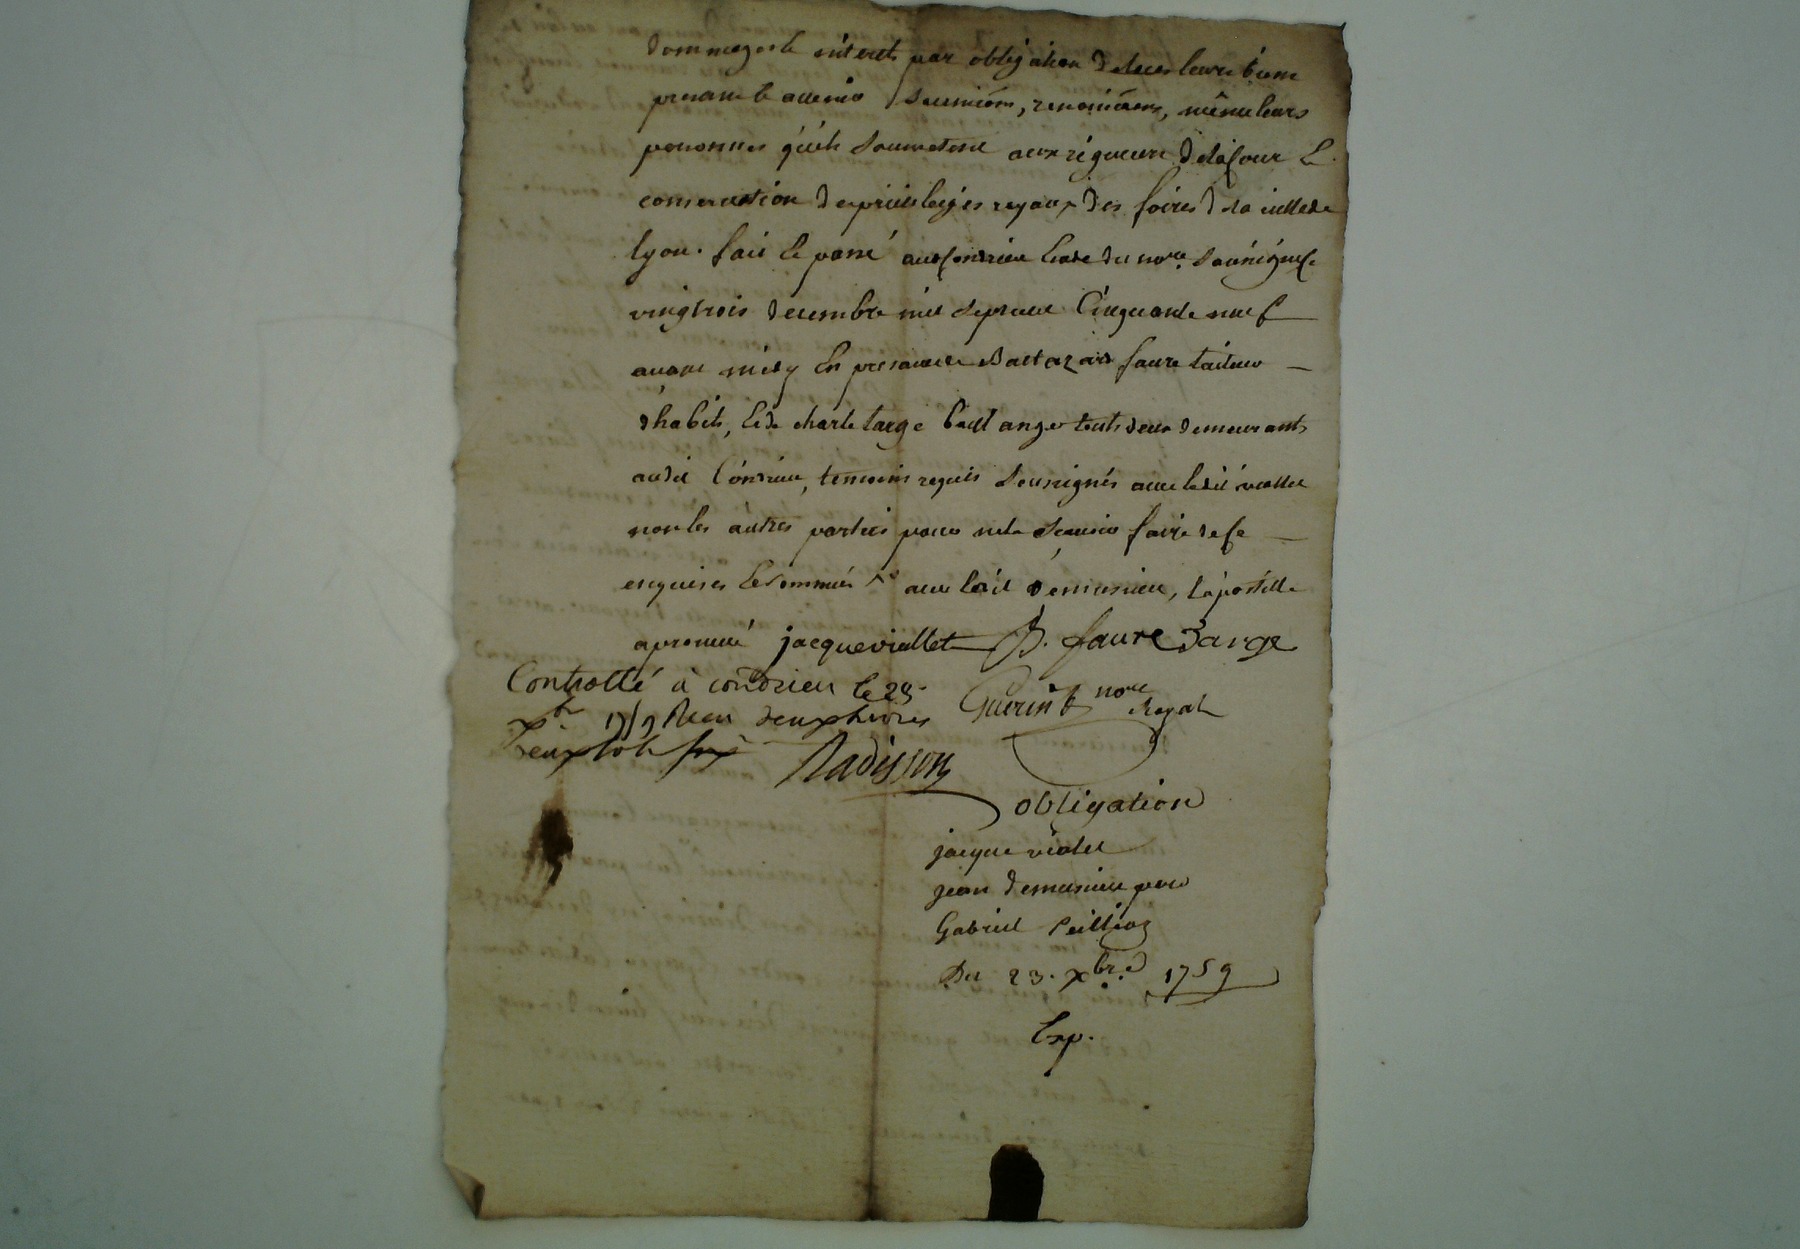 dommages & interets par obligation de tous leurs biens
presants & avenir soumissions, renonciaons, même leurs
personnes qu'ils soumetent aux rigueurs de la Cour &
conservation des privileiges royaux des foires de la ville de
lyon. fait & passé audit Condrieu Etude du nore. soussigné le
vingtrois decembre mil sept cent Cinquante neuf
avant midy En presance de Baltazard faure tailieur
d'habits, & de charle targe boulanger touts deux demeurants
audit Condrieu, temoins requis soussignés avec ledit viallet
non les autres parties pour ne le scavoir faire de ce
enquises & sommées avec ledit demusieu, l'apostille
aprouvée jacque viallet B. faure Targe
Controllé à condrieu le 23
xbre 1759 Reçu deux livres Guerin nore Royal
deux sols Radisson
obligation
jacque violet
jean demusieu pour
Gabriel
Du 23. xbre. 1759
Exp.